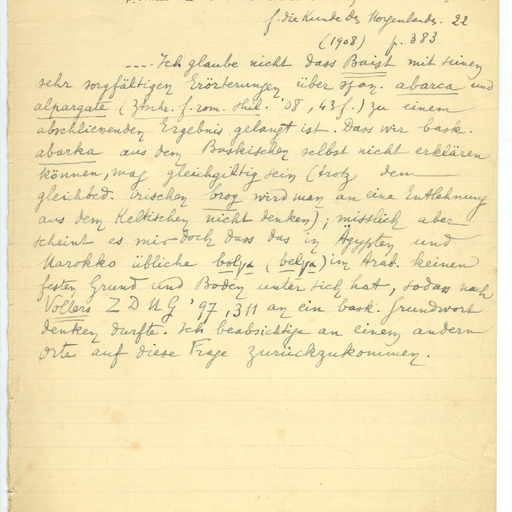 f. die Kunde des Morgenlandes. 22
(1908) p. 383
....Ich glaube nicht dass Baist mit seinen
sehr sorgfältigen Erörterungen über span. abarca und
alpargate (Ztschr. f. rom. Phil. '08, 43 f.) zu einem
abschliessenden Ergebnis gelangt ist. Dass wir bask.
abarka aus dem Baskischen selbst nicht erklären
können, mag gleichgiltig sein (trotz dem
gleichbed. irischen brog wird man an eine Entlehnung
aus dem Keltischen nicht denken); misslich aber
scheint es mir doch dass das in Ägypten und
Marokko übliche bolγa (belγa) im Arab. keinen
festen Grund und Boden unter sich hat, sodass nach
Vollers ZDMG '97, 311 an ein bask. Grundwort
denken durfte. Ich beabsichtige an einem andern
Orte auf diese Frage zurückzukommen.